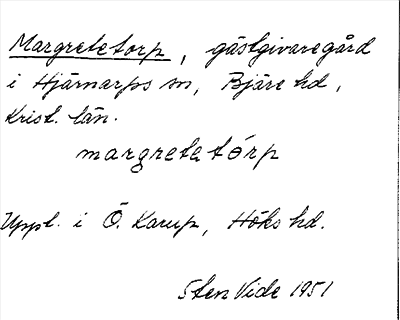 Margretetorp, gästgivaregård
i Hjärnarps sn, Bjäre hd,
Krist. län.
margretetórp
Uppl. i Ö. Karup, Höks hd.
Sten Vide 1951